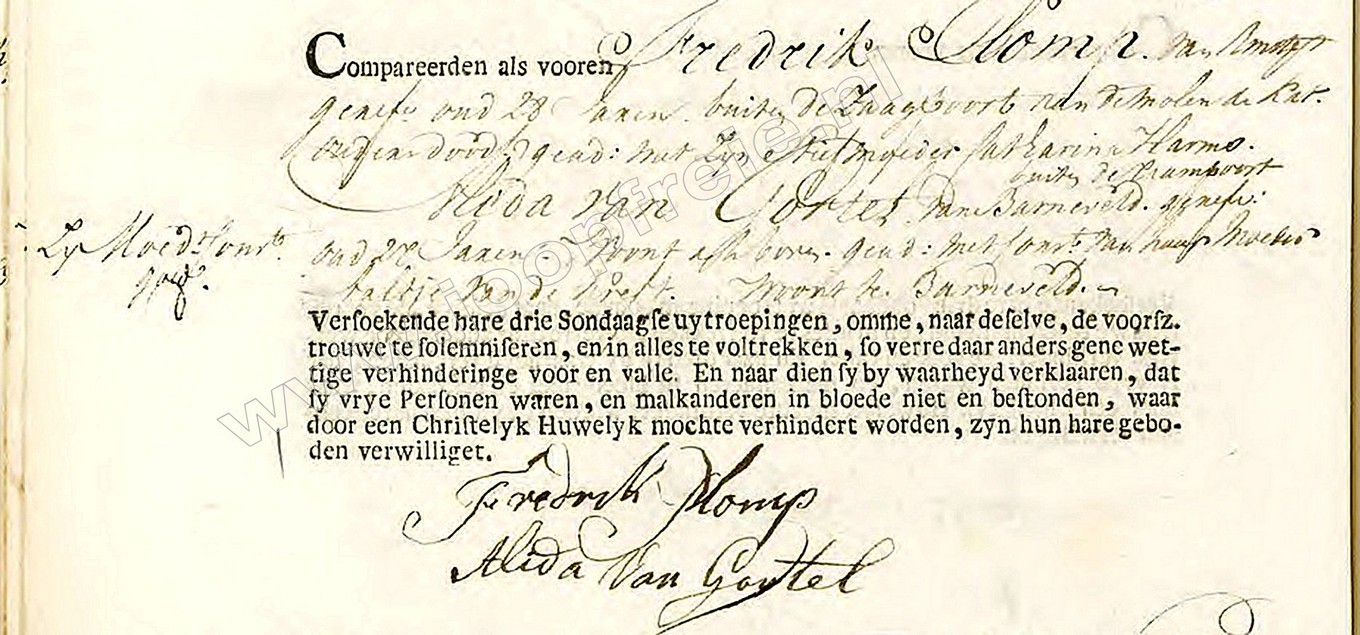 Compareerden als vooren Fredrik Plomp. van Amst
geref. oud 28 Jaaren. buiten de Zaagpoort van de molen de Kat.
ouders dood, gead: met Zijn Stiefmoeder Catharina Harms.
buiten de Raampoort
Alida Van Gortel van Barneveld. geref:
oud 28 Jaaren. Woont als vooren. gead: met Cons: van haar Moeder
van de Woont te Barneveld.
Moed: Cons:
Versoekende hare drie Sondaagse uytroepingen, omme, naar deselve, de voorsz.
trouwe te solemniseren, en in alles te voltrekken, so verre daar anders gene wet-
tige verhinderinge voor en valle. En naar dien sy by waarheyd verklaaren, dat
sy vrye Personen waren, en malkanderen in bloede niet en bestonden, waar
door een Christelyk Huwelyk mochte verhindert worden, zyn hun hare gebo-
den verwilliget.
Fredrik Plomp
Alida Van Gortel
www.joopfreie.nl